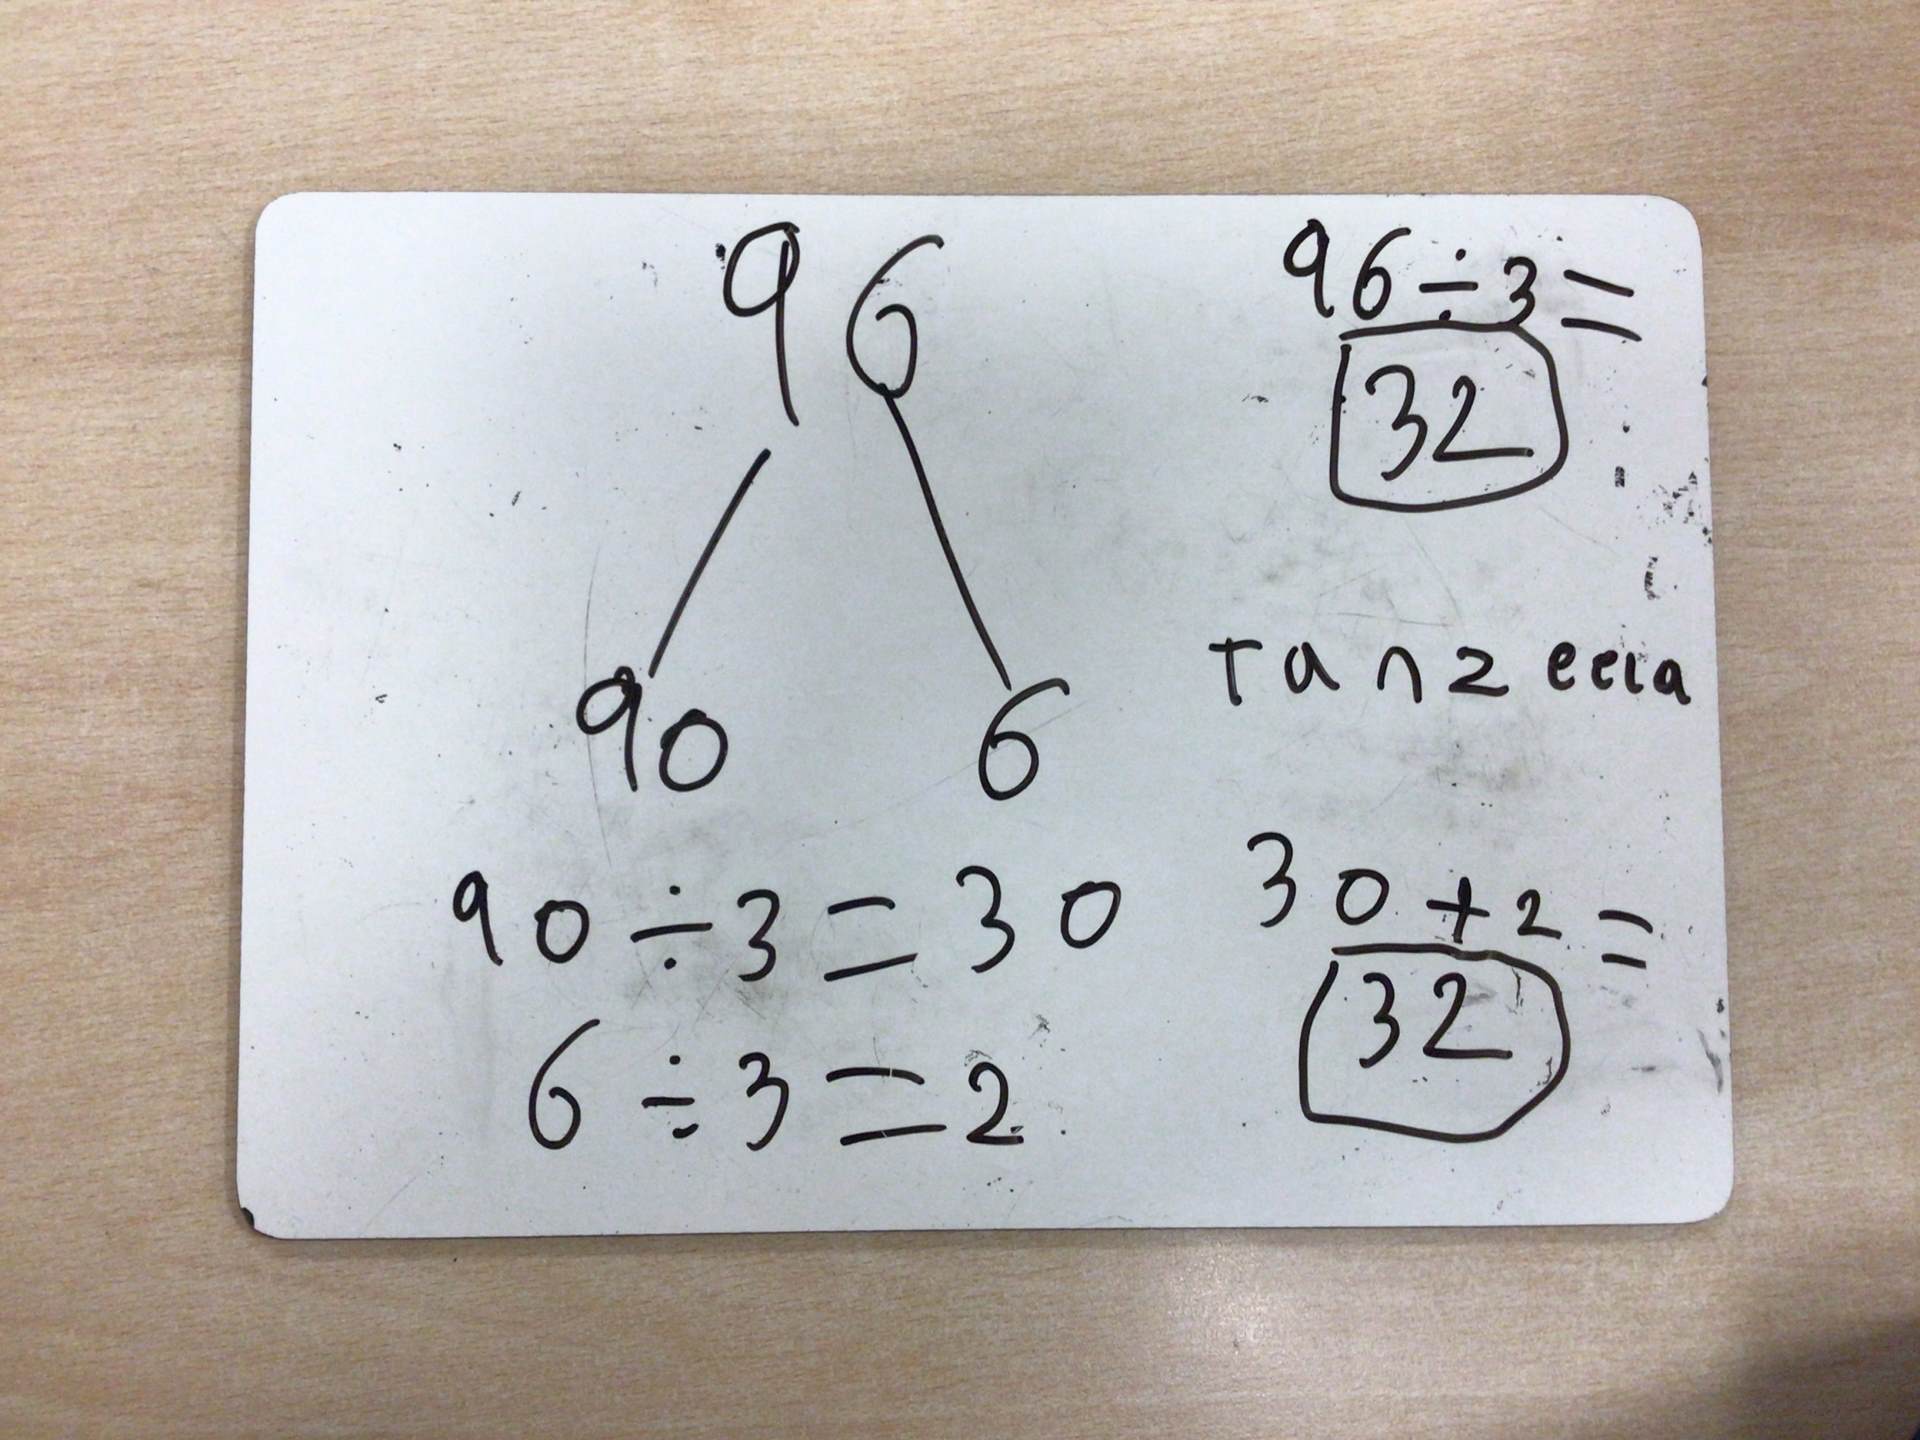 96
96÷3=
32
90 6
Tanzeela
90÷3=30
30+2=
32
6÷3=2